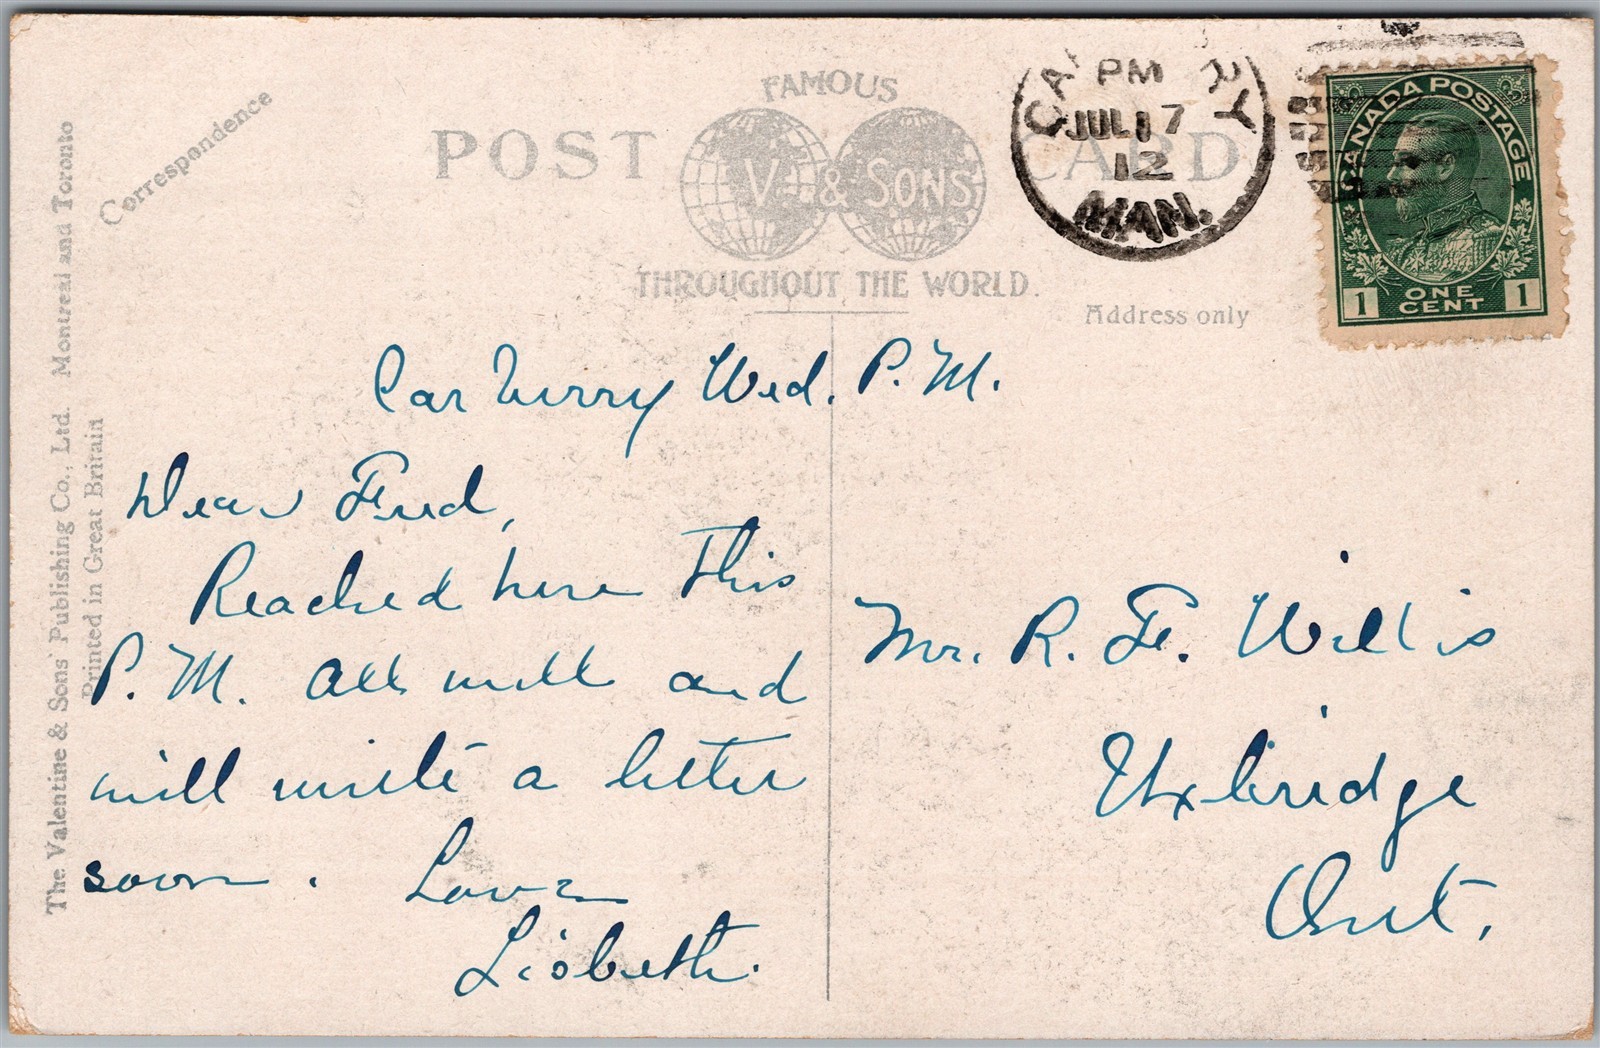 Correspondence
FAMOUS
POST CARD
V & SONS
THROUGHOUT THE WORLD.
Address only
PM
JUL 17
12
MAN.
CANADA POSTAGE
1 ONE CENT 1
The Valentine & Sons' Publishing Co., Ltd. Montreal and Toronto
Printed in Great Britain
Carberry Wed. P.M.
Dear Fred,
Reached here this
P.M. All well and
will write a letter
soon. Love
Lisbeth.
Mr. R. F. Willis
Uxbridge
Ont.